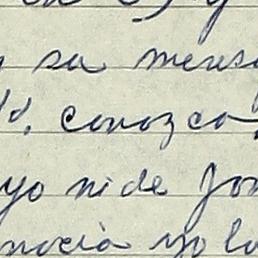 su mensa
conozca
yo ni de Jon
nocia yo lo